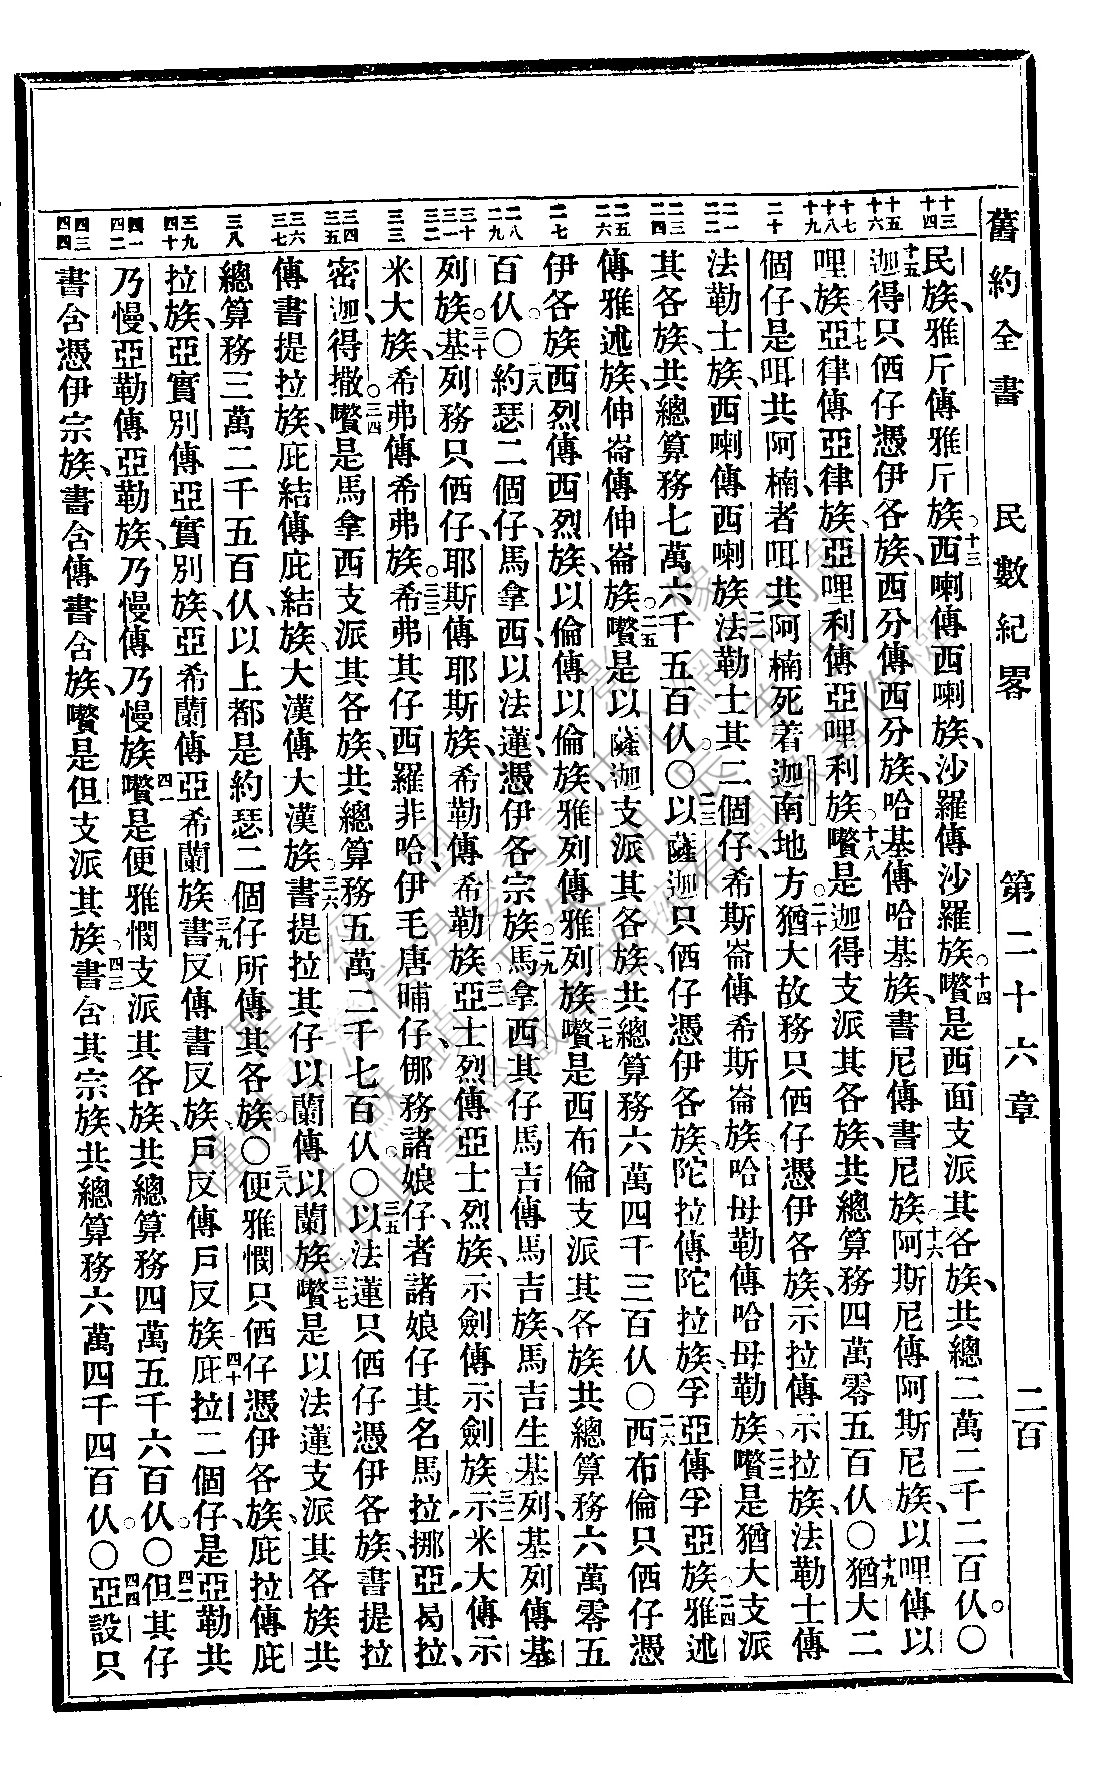 舊約全書 民數紀畧 第二十六章 二百
民族、雅斤傳雅斤族。十三西喇傳西喇族、沙羅傳沙羅族。十四嚽是西面支派其各族、共總二萬二千二百仈。〇
十五迦得只倻仔憑伊各族、西分傳西分族、哈基傳哈基族、書尼傳書尼族、十六阿斯尼傳阿斯尼族、以哩傳以
哩族、十七亞律傳亞律族、亞哩利傳亞哩利族。十八嚽是迦得支派其各族、共總算務四萬零五百仈。〇十九猶大二
個仔是咡共阿楠者咡共阿楠死着迦南地方。二十猶大故務只倻仔憑伊各族、示拉傳示拉族、法勒士傳
法勒士族、西喇傳西喇族、二一法勒士其二個仔、希斯崙傳希斯崙族、哈母勒傳哈母勒族。二二嚽是猶大支派
其各族、共總算務七萬六千五百仈。〇二三以薩迦只倻仔憑伊各族、陀拉傳陀拉族、孚亞傳孚亞族、二四雅述
傳雅述族、伸崙傳伸崙族。二五嚽是以薩迦支派其各族、共總算務六萬四千三百仈。〇二六西布倫只倻仔憑
伊各族、西烈傳西烈族、以倫傳以倫族、雅列傳雅列族。二七嚽是西布倫支派其各族共總算務六萬零五
百仈。〇二八約瑟二個仔、馬拿西、以法蓮、憑伊各宗族、二九馬拿西其仔馬吉傳馬吉族、馬吉生基列、基列傳基
列族。三十基列務只倻仔、耶斯傳耶斯族、希勒傳希勒族、三一亞士烈傳亞士烈族、示劍傳示劍族、三二示米大傳示
米大族、希弗傳希弗族。三三希弗其仔西羅非哈、伊毛唐晡仔、倻務諸娘仔、者諸娘仔其名馬拉、挪亞、曷拉、
密迦、得撒。三四嚽是馬拿西支派其各族、共總算務五萬二千七百仈。〇三五以法蓮只倻仔憑伊各族、書提拉
傳書提拉族、庇結傳庇結族、大漢傳大漢族、三六書提拉其仔以蘭傳以蘭族。三七嚽是以法蓮支派其各族共
總算務三萬二千五百仈、以上都是約瑟二個仔所傳其各族。〇三八便雅憫只倻仔憑伊各族、庇拉傳庇
拉族、亞實別傳亞實別族、亞希蘭傳亞希蘭族、三九書反傳書反族、戶反傳戶反族、四十庇拉二個仔、是亞勒共
乃慢、亞勒傳亞勒族、乃慢傳乃慢族。四一嚽是便雅憫支派其各族、共總算務四萬五千六百仈。〇四二但其仔
書含憑伊宗族、書含傳書含族、嚽是但支派其族。四三書含其宗族、共總算務六萬四千四百仈。〇四四亞設只